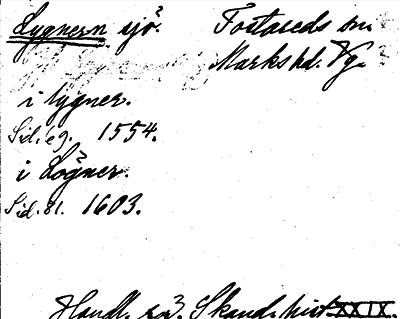 Lygnern sjö.
Fotskeds sn.
Marks hd. Vg.
i lygner.
Sid. 69. 1554.
i Lögner.
Sid. 81. 1603.
Handl. rör. Skand. hist. XXIX.